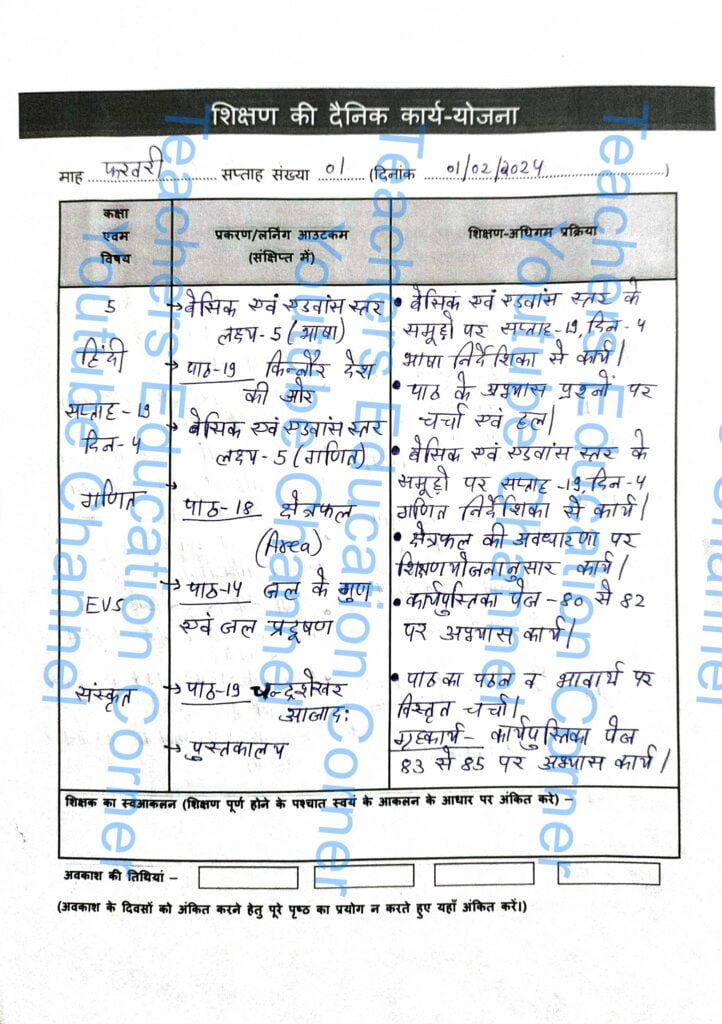 शिक्षण की दैनिक कार्य-योजना
माह फरवरी सप्ताह संख्या 01 (दिनांक 01/02/2024)
कक्षा
एवम
विषय
प्रकरण/लर्निंग आउटकम
(संक्षिप्त में)
शिक्षण-अधिगम प्रक्रिया
5
हिंदी
सप्ताह-19
दिन-4
→ बेसिक एवं एडवांस स्तर
लक्ष्य-5 (भाषा)
→ पाठ-19 किन्नौर देश
की ओर
• बेसिक एवं एडवांस स्तर के
समूहों पर सप्ताह-19, दिन-4
भाषा निर्देशिका से कार्य।
• पाठ के अभ्यास प्रश्नों पर
चर्चा एवं हल।
गणित
→ बेसिक एवं एडवांस स्तर
लक्ष्य-5 (गणित)
→ पाठ-18 क्षेत्रफल
(Area)
• बेसिक एवं एडवांस स्तर के
समूहों पर सप्ताह-19, दिन-4
गणित निर्देशिका से कार्य।
• क्षेत्रफल की अवधारणा पर
शिक्षणयोजनानुसार कार्य।
EVS
→ पाठ-14 जल के गुण
एवं जल प्रदूषण
• कार्यपुस्तिका पेज-80 से 82
पर अभ्यास कार्य।
संस्कृत
→ पाठ-19 चन्द्रशेखर
आजाद:
→ पुस्तकालय
• पाठ का पठन व भावार्थ पर
विस्तृत चर्चा।
गृहकार्य- कार्यपुस्तिका पेज
83 से 85 पर अभ्यास कार्य।
शिक्षक का स्वआकलन (शिक्षण पूर्ण होने के पश्चात स्वयं के आकलन के आधार पर अंकित करे) –
अवकाश की तिथियां –
(अवकाश के दिवसों को अंकित करने हेतु पूरे पृष्ठ का प्रयोग न करते हुए यहाँ अंकित करें।)
Teachers Education Corner
Youtube Channel
Teachers Education Corner
Youtube Channel
Teachers Education Corner
Youtube Channel